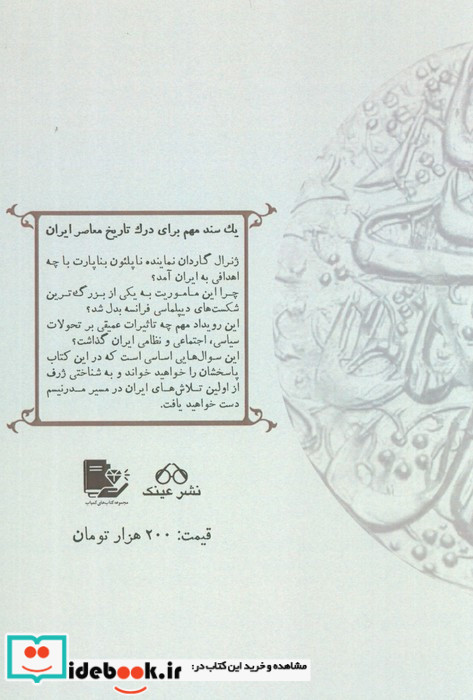 یک سند مهم برای درک تاریخ معاصر ایران
ژنرال گاردان نماینده ناپلئون بناپارت با چه
اهدافی به ایران آمد؟
چرا این ماموریت به یکی از بزرگ‌ترین
شکست‌های دیپلماسی فرانسه بدل شد؟
این رویداد مهم چه تاثیرات عمیقی بر تحولات
سیاسی، اجتماعی و نظامی ایران گذاشت؟
این سوال‌هایی اساسی است که در این کتاب
پاسخشان را خواهید خواند و به شناختی ژرف
از اولین تلاش‌های ایران در مسیر مدرنیسم
دست خواهید یافت.
نشر عینک
مجموعه کتاب‌های کمیاب
قیمت: ۲۰۰ هزار تومان
مشاهده و خرید این کتاب در:
idebook.ir